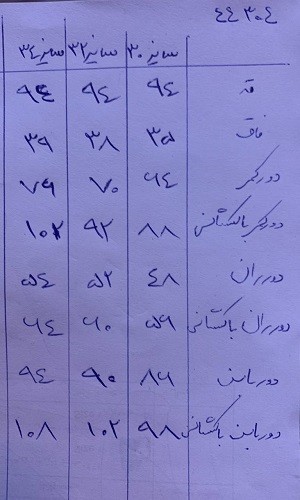 ۴۴۳۰۴
سایز ۳۰ سایز ۳۲ سایز ۳۴
قد ۹۴ ۹۴ ۹۴
فاق ۳۵ ۳۸ ۳۹
دور کمر ۶۴ ۷۰ ۷۶
دور کمر با کشسانی ۸۸ ۹۲ ۱۰۲
دور ران ۴۸ ۵۲ ۵۴
دور ران با کشسانی ۵۶ ۶۰ ۶۴
دور باسن ۸۶ ۹۰ ۹۴
دور باسن با کشسانی ۹۸ ۱۰۲ ۱۰۸